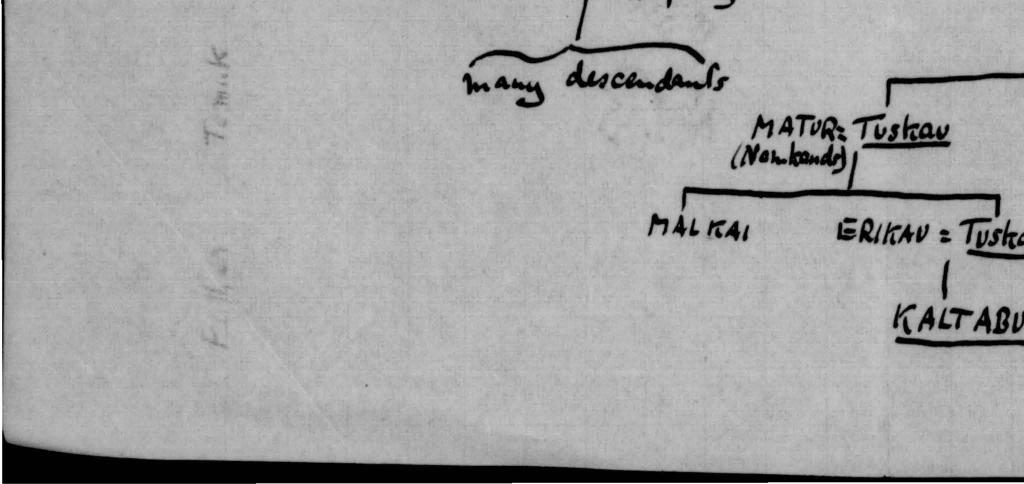 many descendants
MATUR = Tuskau
(Nambands)
MALKAI
ERIKAU = Tuska
KALTABU